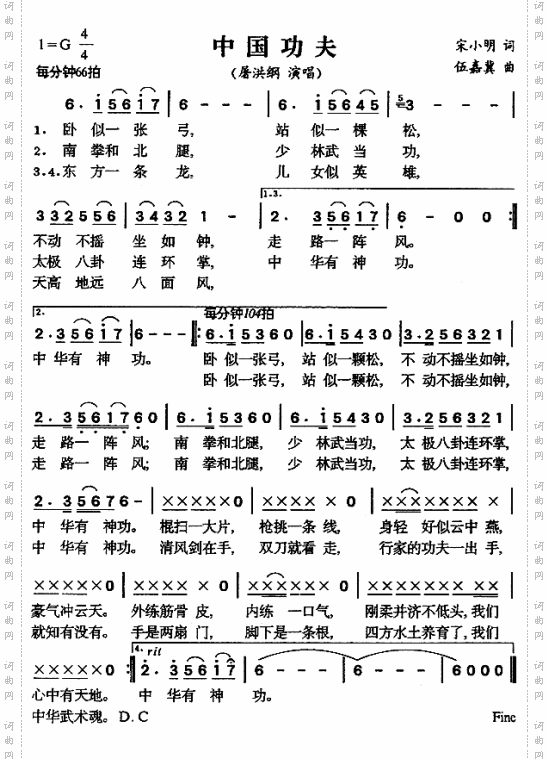 中国功夫
1=G 4/4
宋小明 词
每分钟66拍
(屠洪纲 演唱)
伍嘉冀 曲
6· i5617 | 6 - - - | 6· i5645 | 5 3 - - - |
1. 卧 似一 张 弓, 站 似一 棵 松,
2. 南 拳和 北 腿, 少 林武 当 功,
3.4.东 方一 条 龙, 儿 女似 英 雄,
1.3.
332556 | 3432 1 - | 2· 35617 | 6 - 0 0 :|
不动 不摇 坐 如 钟, 走 路一 阵 风。
太极 八卦 连 环 掌, 中 华有 神 功。
天高 地远 八 面 风,
2. 每分钟104拍
2·35617 | 6 - - - |: 6·i5360 | 6·i5430 | 3·256321 |
中 华有 神 功。 卧 似一张 弓, 站 似一颗松, 不 动不摇坐如钟,
卧 似一张 弓, 站 似一颗松, 不 动不摇坐如钟,
2·3561760 | 6·i5360 | 6·i5430 | 3·256321 |
走 路一 阵 风; 南 拳和北腿, 少 林武当功, 太 极八卦连环掌,
走 路一 阵 风; 南 拳和北腿, 少 林武当功, 太 极八卦连环掌,
2·35676 - | ×××××0 | ×××× × 0 | ××××××× |
中 华有 神功。 棍扫一大片, 枪挑一条 线, 身轻 好似云中 燕,
中 华有 神功。 清风剑在手, 双刀就看 走, 行家的功夫一出 手,
×××××0 | ×××× × 0 | ×××××0 | ××××××××× |
豪气冲云天。 外练筋骨 皮, 内练 一口气, 刚柔并济不低头,我们
就知有没有。 手是两扇 门, 脚下是一条根, 四方水土养育了,我们
4. rit
×××××0 :| 2· 35617 | 6 - - - | 6 - - - | 6000 ‖
心中有天地。 中 华有 神 功。
中华武术魂。 D.C Fine
词曲网